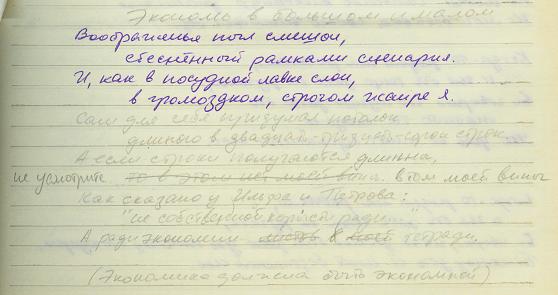 Экономь в большом и малом
Воображенья пыл смешон,
стеснённый рамками сценария.
И, как в посудной лавке слон,
в громоздком, строгом жанре я.
Сам для себя придумал потолок
длиною в двадцать - тридцать - сорок строк
А если строки получаются длинны,
не усмотрите то в этом нет моей вины. в том моей вины
Как сказано у Ильфа и Петрова:
"не собственной корысти ради"
А ради экономии листов в моей тетради.
(Экономика должна быть экономной)